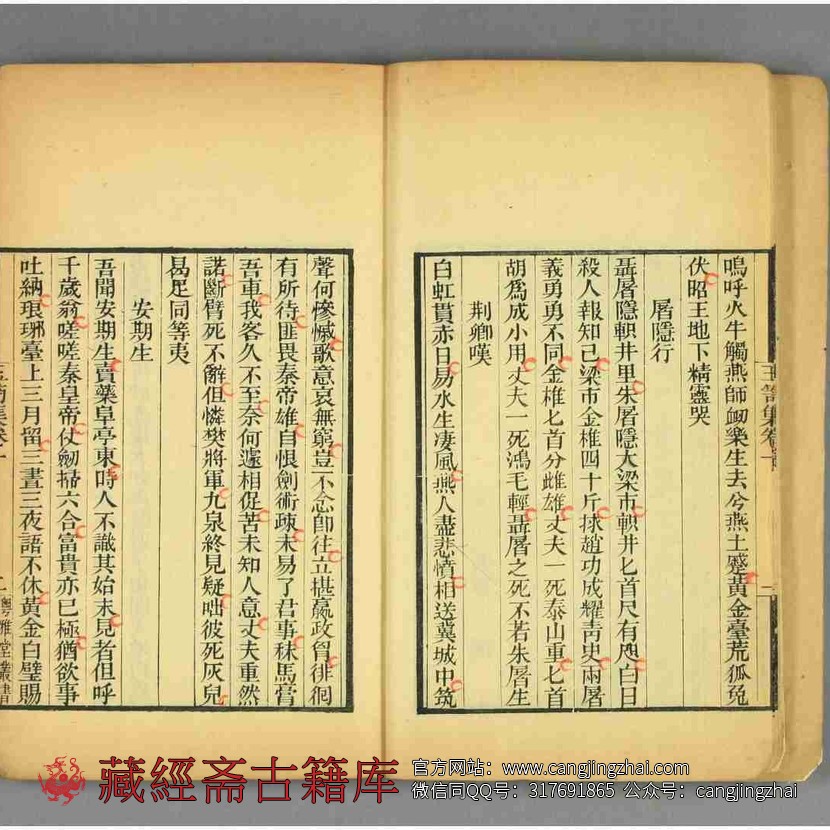 玉笥集卷一
嗚呼火牛觸燕師衂樂生去兮燕土蹙黃金臺荒狐兔
伏昭王地下精靈哭
屠隱行
聶屠隱軹井里朱屠隱大梁市軹井匕首尺有咫白日
殺人報知己梁市金椎四十斤捄趙功成耀靑史兩屠
義勇勇不同金椎匕首分雌雄丈夫一死泰山重匕首
胡爲成小用丈夫一死鴻毛輕聶屠之死不若朱屠生
荆卿嘆
白虹貫赤日易水生凄風燕人盡悲憤相送冀城中筑
聲何慘慽歌意哀無窮豈不念卽往立揕嬴政胷徘徊
有所待匪畏秦帝雄自恨劍術疎未易了君事秣馬膏
吾車我客久不至奈何遽相促苦未知人意丈夫重然
諾斷臂死不辭但憐樊將軍九泉終見疑咄彼死灰兒
曷足同等夷
安期生
吾聞安期生賣藥阜亭東時人不識其始末見者但呼
千歲翁嗟嗟秦皇帝仗劒掃六合富貴亦已極猶欲事
吐納琅琊臺上三月留三晝三夜語不休黃金白璧賜
粵雅堂叢書
藏經斋古籍库
官方网站：www.cangjingzhai.com
微信同QQ号：317691865 公众号：cangjingzhai